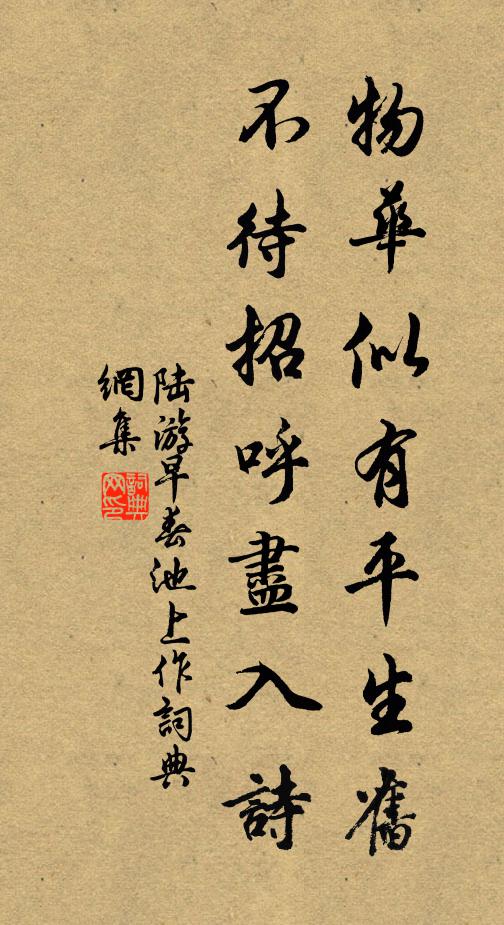 物華似有平生舊
不待招呼盡入詩
陆游早春池上作詞典
網集
詞典
网印